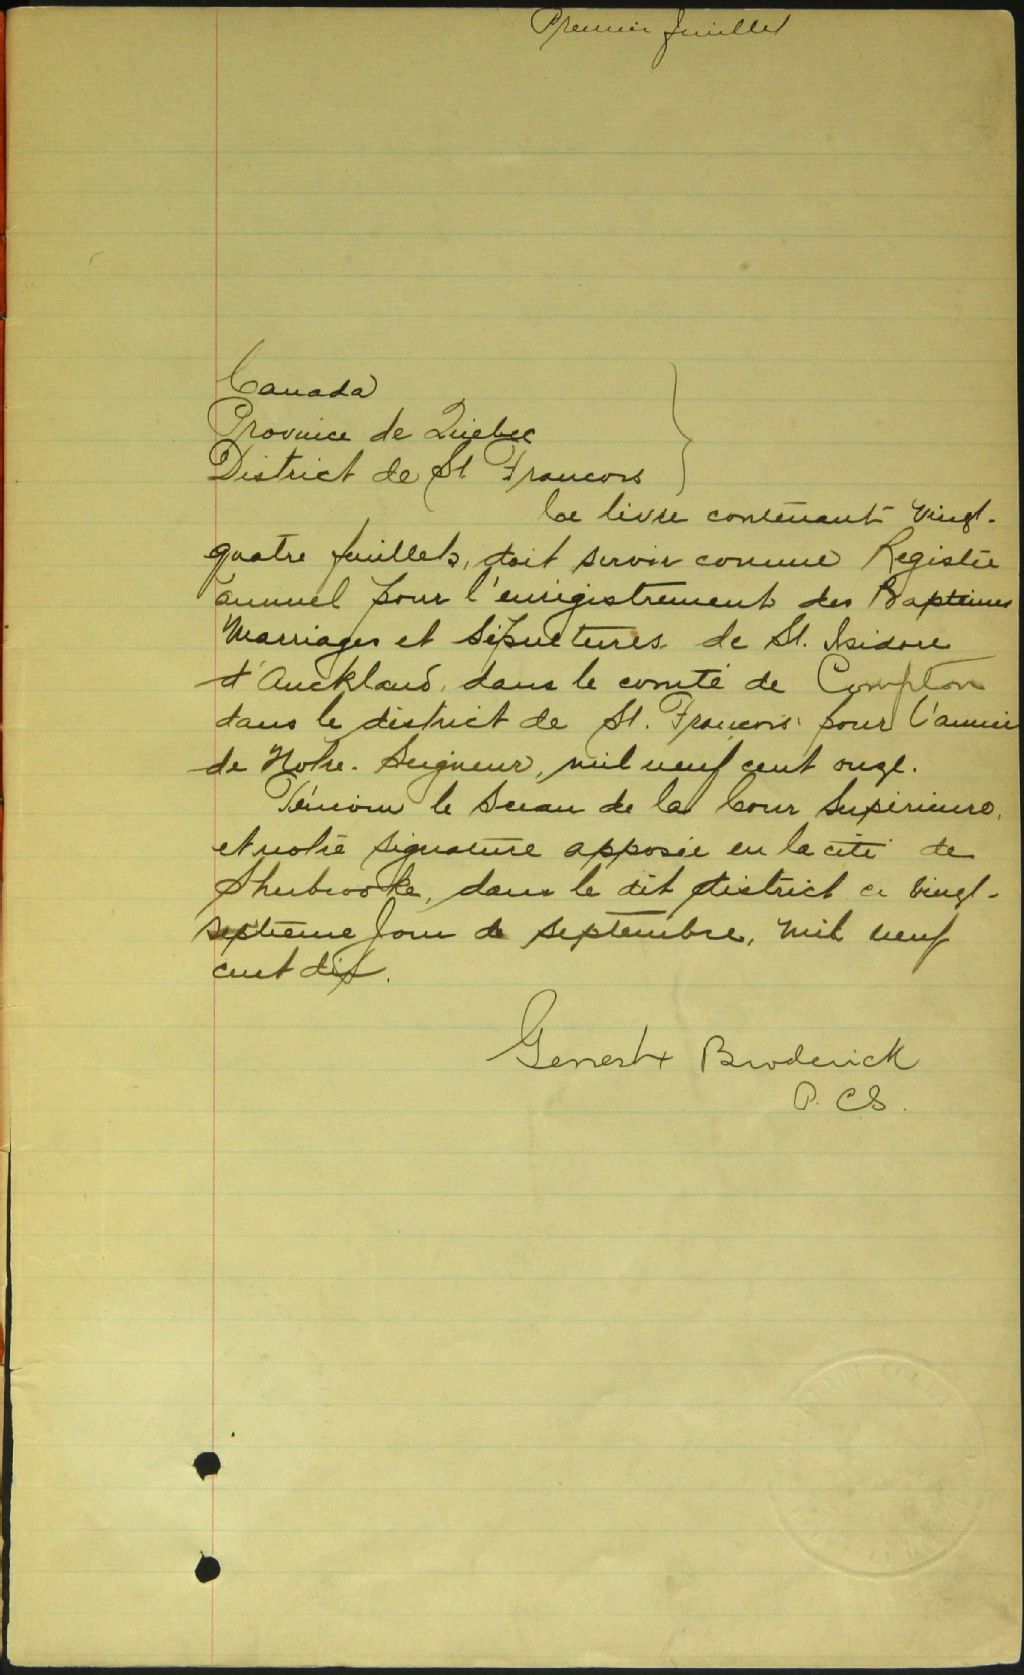 Premier feuillet
Canada
Province de Québec
District de St. Francois
Ce livre contenant vingt-
quatre feuillets, doit servir comme Registre
annuel pour l'enregistrement des Baptemes
Marriages et Sépultures de St. Isidore
d'Auckland, dans le comté de Compton
dans le district de St. Francois pour l'année
de Notre-Seigneur, mil neuf cent onze.
Témoin le Sceau de la Cour Supérieure,
et notre signature apposée en la cité de
Sherbrooke, dans le dit district ce vingt-
septième Jour de septembre, mil neuf
cent dix.
Genest & Broderick
P. C S.